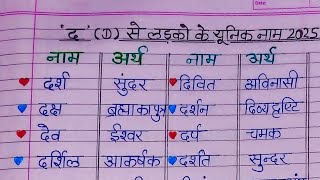 Date
'द' (D) से लड़को के यूनिक नाम 2025
नाम अर्थ नाम अर्थ
दर्श सुंदर दिवित अविनासी
दक्ष ब्रह्माकापुत्र दर्शन दिव्यदृष्टि
देव ईश्वर दर्प चमक
दर्शिल आकर्षक दर्शत सुन्दर